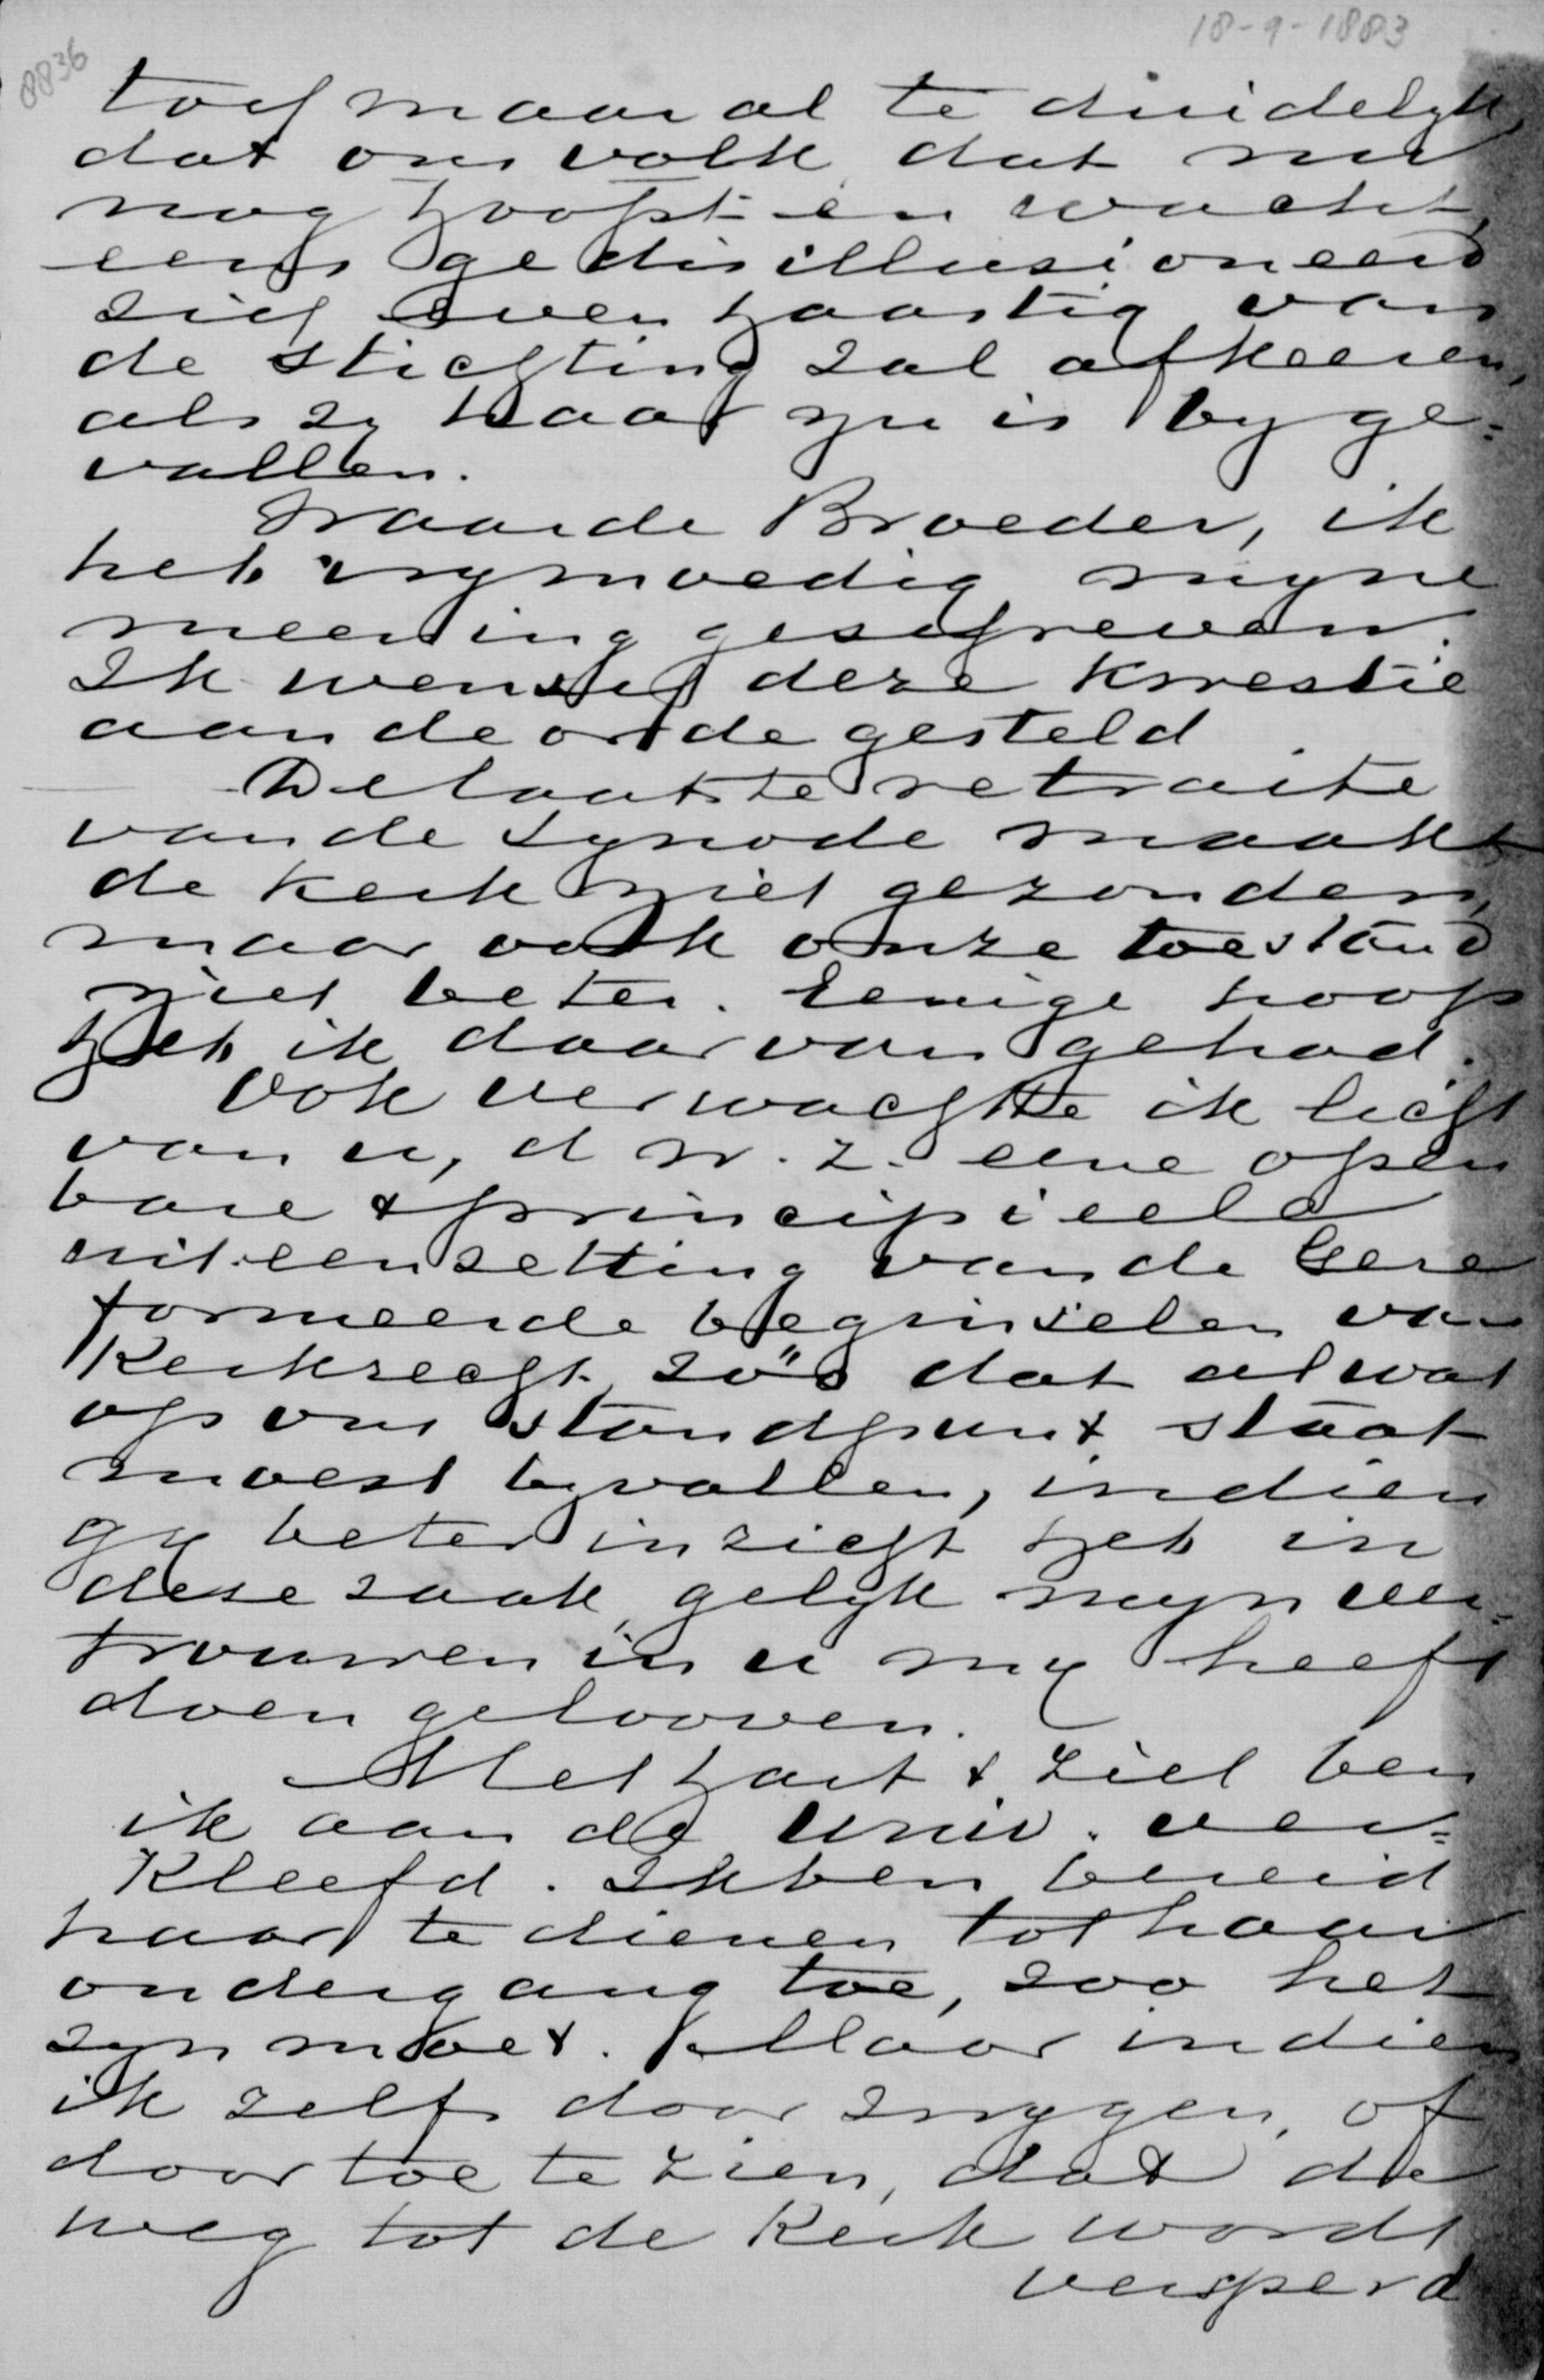 18-9-1883
8836
toch maar al te duidelyk,
dat ons volk, dat nu
nog hoopt en wacht,
eens gedisillusioneerd
zich even haastig van
de stichting zal afkeeren,
als zy haar nu is by ge=
vallen.
Waarde Broeder, ik
heb vrymoedig myne
meening geschreven.
Ik wensch deze kwestie
aan de orde gesteld
De laatste retraite
van de Synode maakt
de Kerk niet gezonder,
maar ook onze toestand
niet beter. Eenige hoop
heb ik daarvan gehad.
Ook verwachtte ik licht
van u, d. w. z. eene open
bare & principieele
uiteenzetting van de Gere
formeerde beginselen van
Kerkrecht, zóó dat al wat
op ons standpunt staat
moest byvallen, indien
gy beter inzicht heb in
deze zaak, gelyk myn ver=
trouwen in u my heeft
doen gelooven.
Met hart & ziel ben
ik aan de Univ. ver=
kleefd. Ik ben bereid
haar te dienen tot haar
ondergang toe, zoo het
zyn moet. Maar indien
ik zelf door zwygen, of
door toe te zien, dat de
weg tot de Kerk wordt
versperd